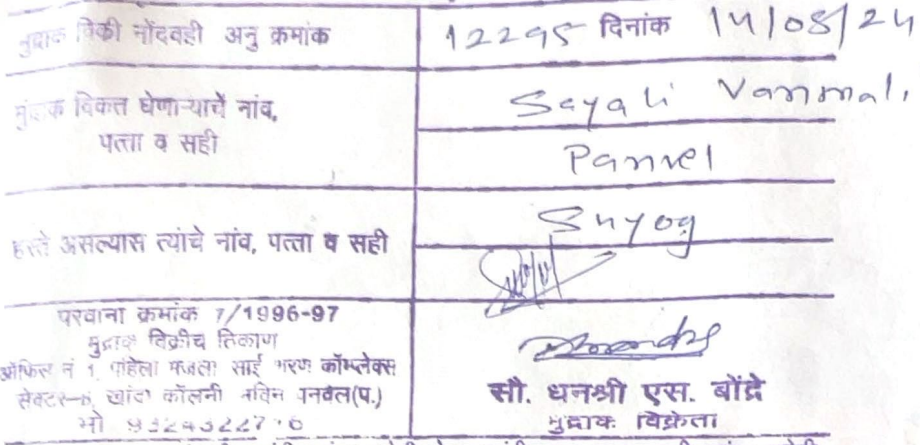 मुद्रांक विक्री नोंदवही अनु क्रमांक 12295 दिनांक 14/08/24
मुद्रांक विकत घेणाऱ्याचे नांव, Sayali Vanmali
पत्ता व सही Panvel
हस्ते असल्यास त्यांचे नांव, पत्ता व सही Suyog
परवाना क्रमांक 7/1996-97
मुद्रांक विक्रीचे ठिकाण
ऑफिस नं 1, पहिला मजला साई शरण कॉम्प्लेक्स
सेक्टर-8, खांदा कॉलनी नविन पनवेल(प.)
मो
सौ. धनश्री एस. बोंद्रे
मुद्रांक विक्रेता